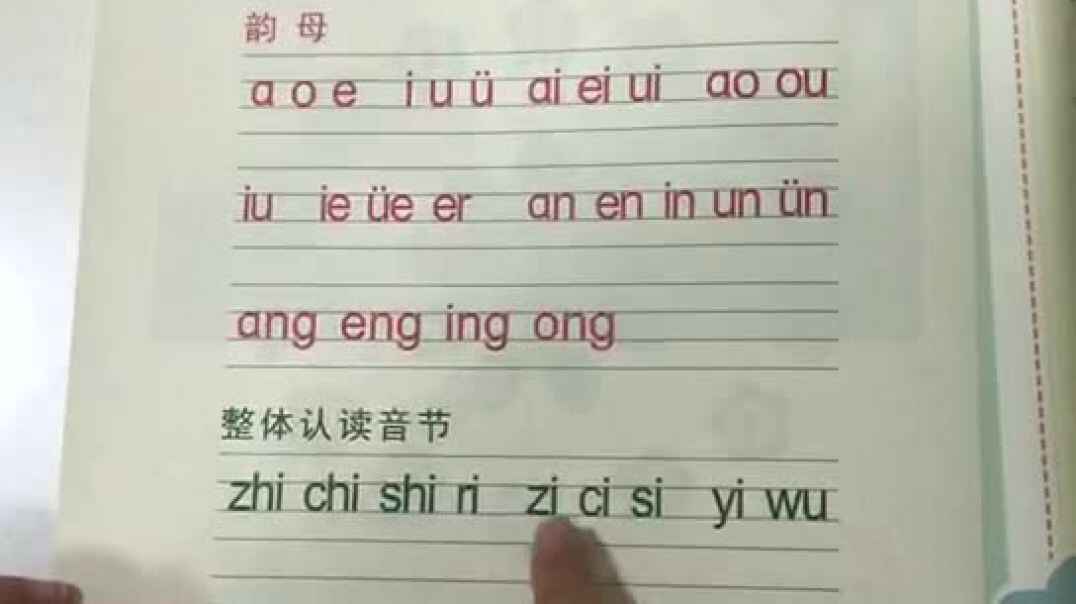 韵母
a o e i u ü ai ei ui ao ou
iu ie üe er an en in un ün
ang eng ing ong
整体认读音节
zhi chi shi ri zi ci si yi wu